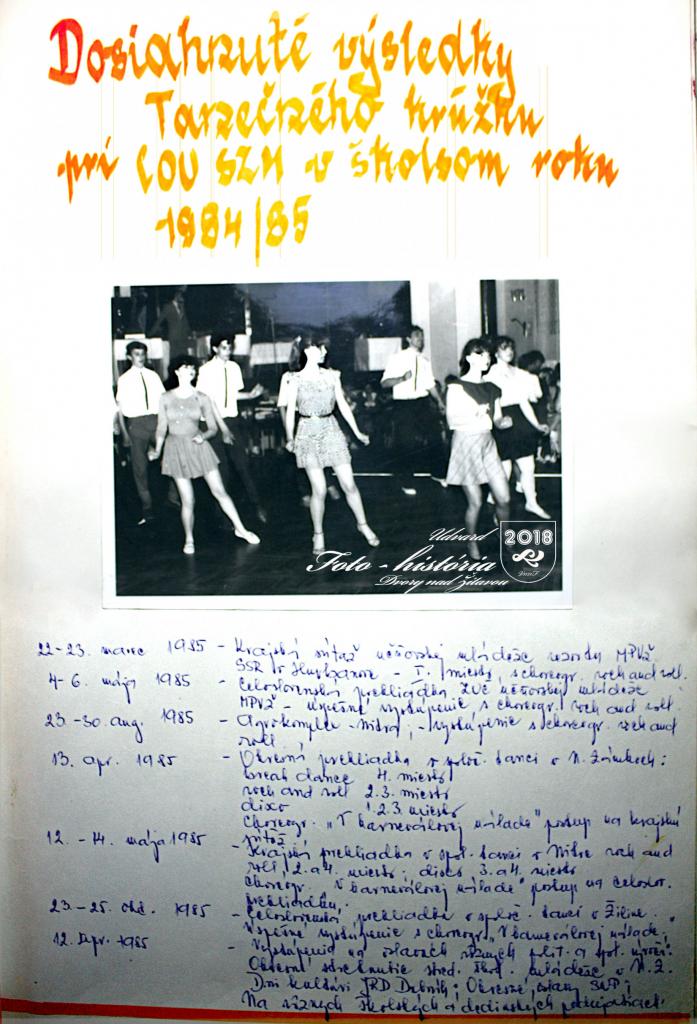 Dosiahnuté výsledky
Tanečného krúžku
pri COV SZM v školsom roku
1984/85
Udvard
2018
Foto - história
Dvory nad Žitavou
22-23. marec 1985 - Krajská súťaž učňovskej mládeže rezortu MPVž
SSR v Hurbanove - I. miesto, s choreogr. rock and roll.
4-6. mája 1985 - Celoslovenská prehliadka ZUČ učňovskej mládeže
MPVž - úspešné vystúpenie s choreogr. rock and roll.
23-30. aug. 1985 - Agrokomplex - Nitra, - vystúpenie s choreogr. rock and
roll.
13. apr. 1985 - Okresná prehliadka v spoloč. tanci v N. Zámkoch:
break dance 4. miesto
rock and roll 2. 3. miesto
disko 1. 2. 3. miesto
Choreogr. "V karnevalovej nálade" postup na krajskú
súťaž.
12. - 14. mája 1985 - Krajská prehliadka v spol. tanci v Nitre rock and
roll, 2. a 4. miesto; disco 3. a 4. miesto
Choreogr. "V karnevalovej nálade" postup na celoslov.
prehliadku.
23-25. okt. 1985 - Celoslovenská prehliadka v spoloč. tanci v Žiline.
Úspešné vystúpenie s choreogr. "V karnevalovej nálade".
12. 1985 - Vystúpenia na oslavách rôznych polit. a spol. výročí:
Okresné stretnutie stred. škol. mládeže v N. Z.
Dni kultúry JRD Dubník; Okresné oslavy SNP;
Na rôznych školských a dedinských podujatiach.